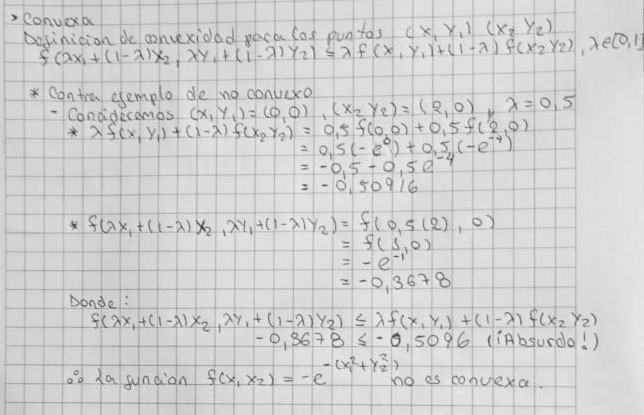 > Convexa
Definicion de convexidad para los puntos (x₁ y₁) (x₂ y₂)
f(λx₁+(1-λ)x₂, λy₁+(1-λ)y₂) ≤ λf(x₁ y₁)+(1-λ) f(x₂ y₂), λ∈(0,1)
* Contra ejemplo de no convexo
- Consideramos (x₁ y₁)=(0,0), (x₂ y₂)=(2,0) y λ=0,5
* λf(x₁ y₁)+(1-λ)f(x₂ y₂) = 0,5 f(0,0) + 0,5 f(2,0)
= 0,5(-e⁰) + 0,5(-e⁻⁴)
= -0,5 - 0,5e⁻⁴
= -0,50916
* f(λx₁+(1-λ)x₂, λy₁+(1-λ)y₂) = f(0,5(2), 0)
= f(1,0)
= -e⁻¹
= -0,3678
Donde:
f(λx₁+(1-λ)x₂, λy₁+(1-λ)y₂) ≤ λf(x₁ y₁) + (1-λ) f(x₂ y₂)
-0,3678 ≤ -0,5096 (¡Absurdo!)
∴ La funcion f(x₁ x₂) = -e^-(x₁²+y₂²) no es convexa.